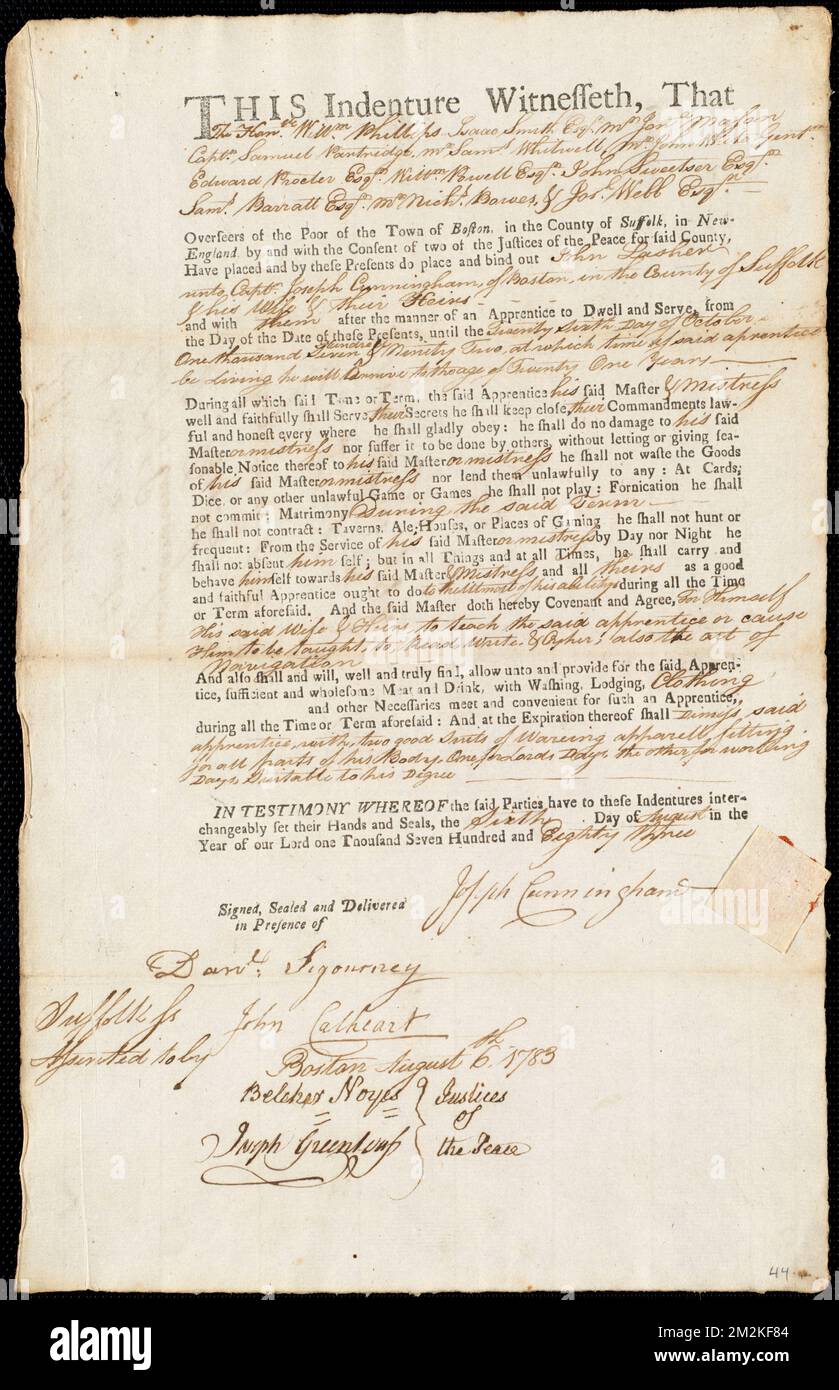 THIS Indenture Witneſſeth, That
The Honble. Willm. Phillips, Isaac Smith Esqr. mr. Jona. Mason
Captn. Samuel Partridge, mr. Saml. Whitwell, mr. John Gentm.
Edward Procter Esqr. Willm. Powell Esqr. John Sweetser Esqr.
Saml. Barratt Esqr. Mr Nichs. Bowes, & Jos. Webb Esqr.
Overſeers of the Poor of the Town of Boſton, in the County of Suffolk, in New-
England, by and with the Conſent of two of the Juſtices of the Peace for ſaid County,
Have placed and by theſe Preſents do place and bind out John
unto Captn. Joseph Cunningham, of Boston, in the County of Suffolk
& his Wife & their Heirs
and with them after the manner of an Apprentice to Dwell and Serve, from
the Day of the Date of theſe Preſents, until the Twenty Sixth Day of October
One thousand Seven Hundred & Ninety Two, at which time if said aprentice
be living he will Arrive to the age of Twenty One Years
During all which ſaid Time or Term, the ſaid Apprentice his ſaid Maſter & Mistress
well and faithfully ſhall Serve, their Secrets he ſhall keep cloſe, their Commandments law-
ful and honeſt every where he ſhall gladly obey: he ſhall do no damage to his ſaid
Maſter or mistress nor ſuffer it to be done by others, without letting or giving ſea-
ſonable Notice thereof to his ſaid Maſter or mistress he ſhall not waſte the Goods
of his ſaid Maſter or mistress nor lend them unlawfully to any: At Cards,
Dice, or any other unlawful Game or Games he ſhall not play: Fornication he ſhall
not commit; Matrimony During the said Term
he ſhall not contract: Taverns, Ale-Houſes, or Places of Gaming he ſhall not hunt or
frequent: From the Service of his ſaid Maſter or mistress by Day nor Night he
ſhall not abſent him ſelf; but in all Things and at all Times, he ſhall carry and
behave himſelf towards his ſaid Maſter & Mistress and all theirs as a good
and faithful Apprentice ought to do to the Utmost of his ability during all the Time
or Term aforeſaid. And the ſaid Maſter doth hereby Covenant and Agree, For Himself
His said Wife & Heirs, to teach the said apprentice or cause
Him to be taught, to Read Write & Cypher; also the art of
Navigation
And alſo ſhall and will, well and truly find, allow unto and provide for the ſaid Appren-
tice, ſufficient and wholeſome Meat and Drink, with Waſhing, Lodging, Clothing
and other Neceſſaries meet and convenient for ſuch an Apprentice,
during all the Time or Term aforeſaid: And at the Expiration thereof ſhall Dimiss said
apprentice, with, two good Suits of Wareing apparell, fitting
for all parts of his Body, One for Lords Days, the other for working
Days, Suitable to his Degree
IN TESTIMONY WHEREOF the ſaid Parties have to theſe Indentures inter-
changeably ſet their Hands and Seals, the Sixth Day of August in the
Year of our Lord One Thouſand Seven Hundred and Eighty Three
Joseph Cunningham
Signed, Sealed and Delivered
in Preſence of
Danl. Sigourney
Suffolk ss John Cathcart
Assented to by Boston August 6th. 1783
Belcher Noyes } Justices
of
Joseph Greenleaf the Peace
44
alamy
Image ID: 2M2KF84
www.alamy.com